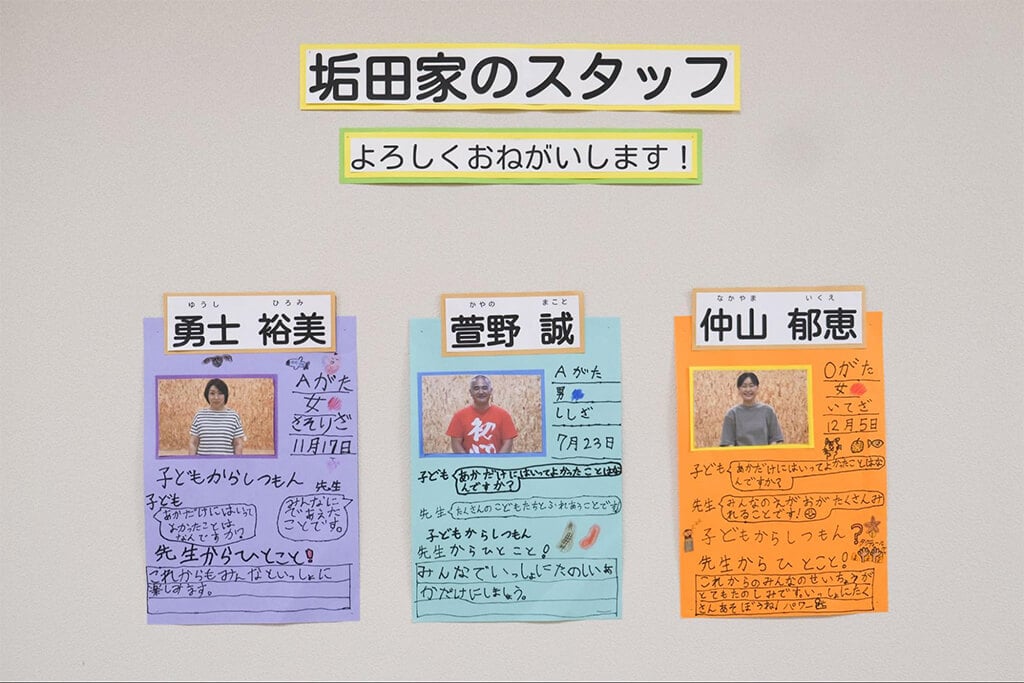 垢田家のスタッフ
よろしくおねがいします！
ゆうし ひろみ
勇士 裕美
Aがた
女
さそりざ
11月17日
子どもからしつもん
子ども
あかだけにはいって
よかったことは
なんですか？
先生
みんなに
であえた
ことです。
先生からひとこと！
これからもみんなといっしょに
楽しみます。
かやの まこと
萱野 誠
Aがた
男
ししざ
7月23日
子ども
あかだけにはいってよかったことはな
んですか？
先生
たくさんのこどもたちとふれあうことです
子どもからしつもん
先生からひとこと！
みんなでいっしょにたのしいあ
かだけにしましょう。
なかやま いくえ
仲山 郁恵
Oがた
女
いてざ
12月5日
子ども
あかだけにはいってよかったことはな
んですか？
先生
みんなのえがおがたくさんみ
れることです！
子どもからしつもん？
先生からひとこと！
これからのみんなのせいちょうが
とてもたのしみです。いっしょにたく
さんあそぼうね！パワー